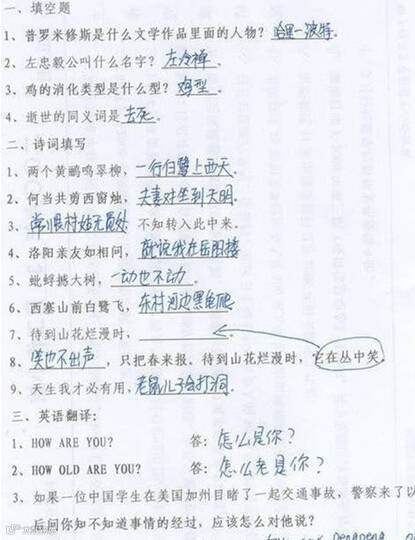 一、填空题
1、普罗米修斯是什么文学作品里面的人物？哈里—波特。
2、左忠毅公叫什么名字？左冷禅。
3、鸡的消化类型是什么型？鸡型。
4、逝世的同义词是 去死。
二、诗词填写
1、两个黄鹂鸣翠柳，一行白鹭上西天。
2、何当共剪西窗烛，夫妻对坐到天明。
3、常恨村姑无觅处 不知转入此中来。
4、洛阳亲友如相问，就说我在岳阳楼
5、蚍蜉撼大树，一动也不动。
6、西塞山前白鹭飞，东村河边黑龟爬
7、待到山花烂漫时，
8、笑也不出声，只把春来报。待到山花烂漫时，它在丛中笑。
9、天生我才必有用，老鼠儿子会打洞。
三、英语翻译：
1、HOW ARE YOU? 答：怎么是你？
2、HOW OLD ARE YOU? 答：怎么老是你？
3、如果一位中国学生在美国加州目睹了一起交通事故，警察来了以
后问你知不知道事情的经过，应该怎么对他说？